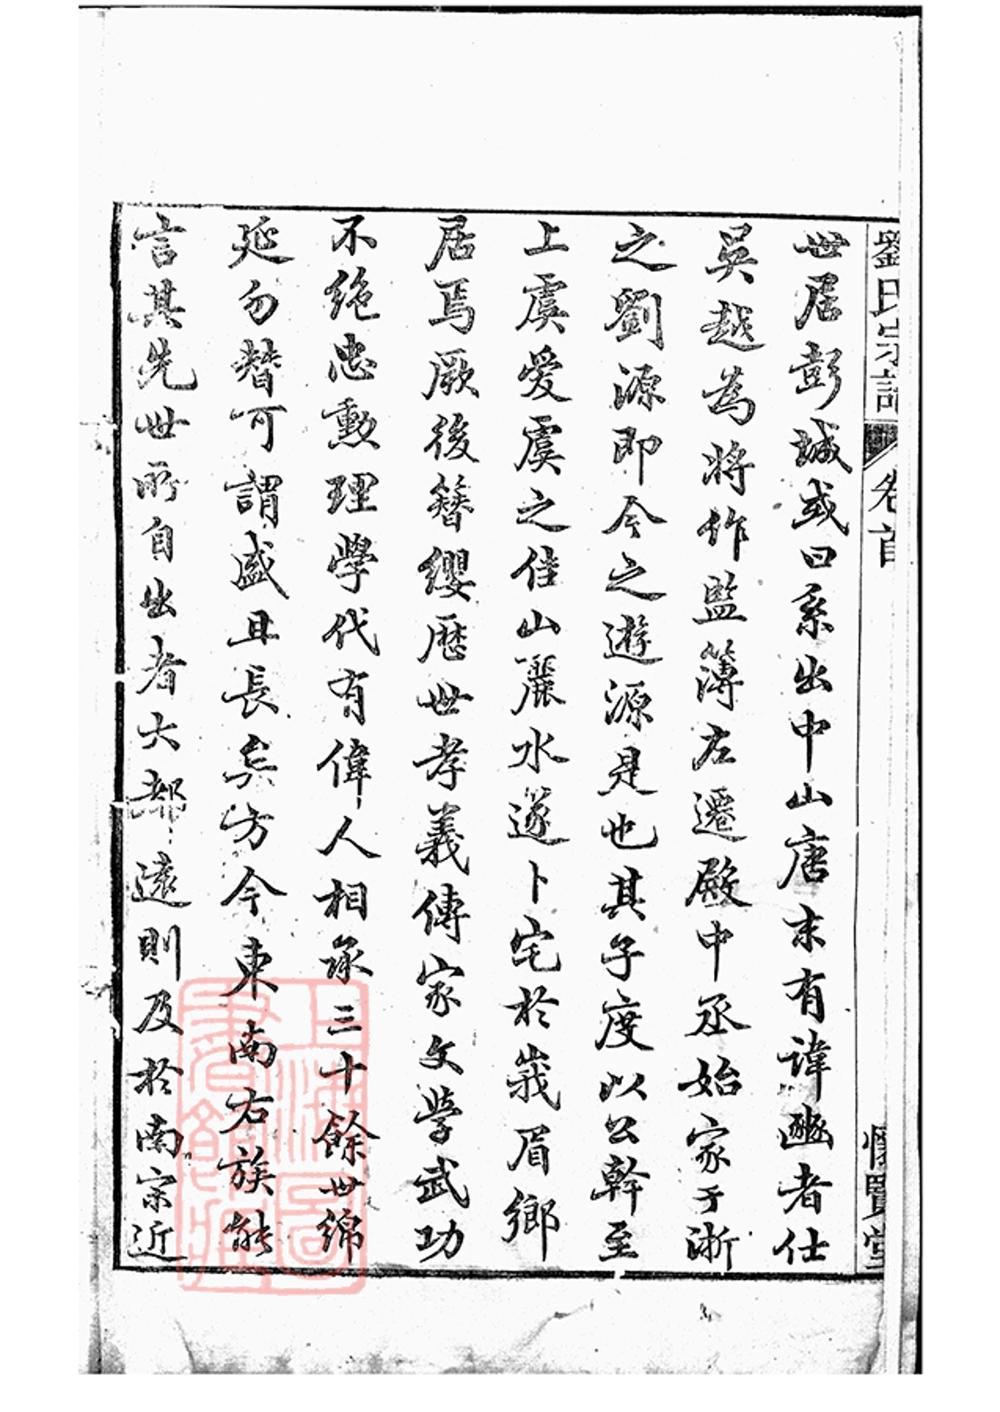 劉氏宗譜
卷首
懷賢堂
世居彭城或曰系出中山唐末有諱豳者仕
吳越為將作監簿左遷殿中丞始家于浙
之劉源即今之遊源是也其子度以公幹至
上虞愛虞之佳山麗水遂卜宅於峩眉鄉
居焉厥後簪纓歷世孝義傳家文學武功
不絕忠勳理學代有偉人相承三十餘世綿
延勿替可謂盛且長矣方今東南右族能
言其先世所自出者大都遠則及於南宗近
上海圖書館藏